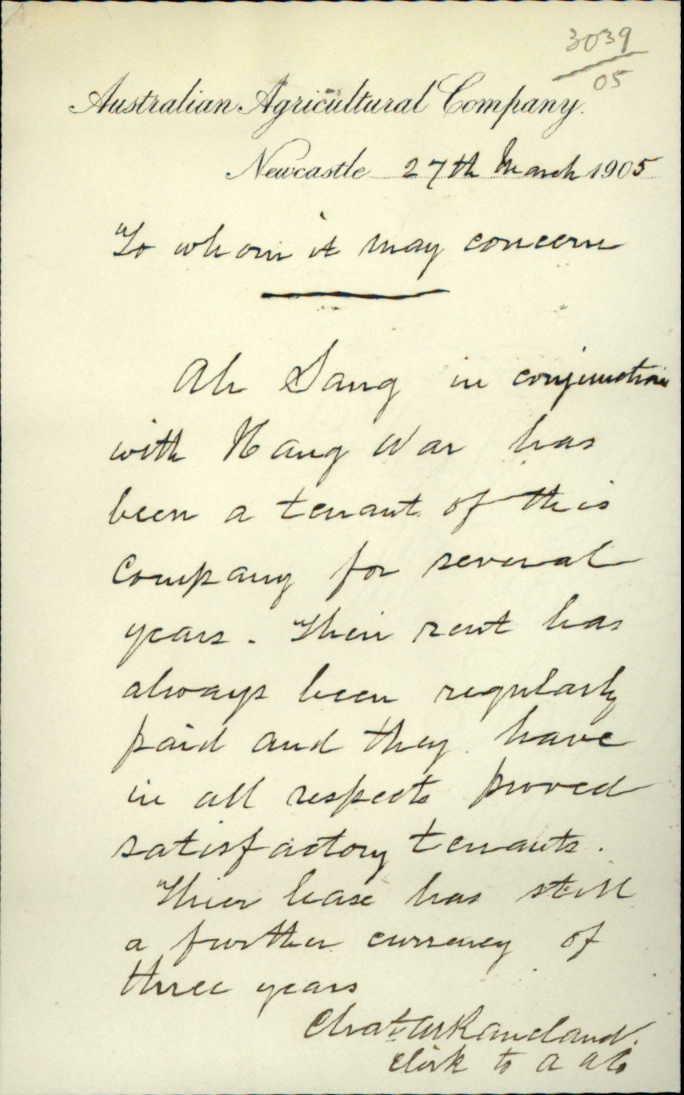 3039
05
Australian Agricultural Company.
Newcastle 27th March 1905
To whom it may concern
Ah Sang in conjunction
with Hang War has
been a tenant of this
Company for several
years. Their rent has
always been regularly
paid and they have
in all respects proved
satisfactory tenants.
Their lease has still
a further currency of
three years
Clerk to A A Co